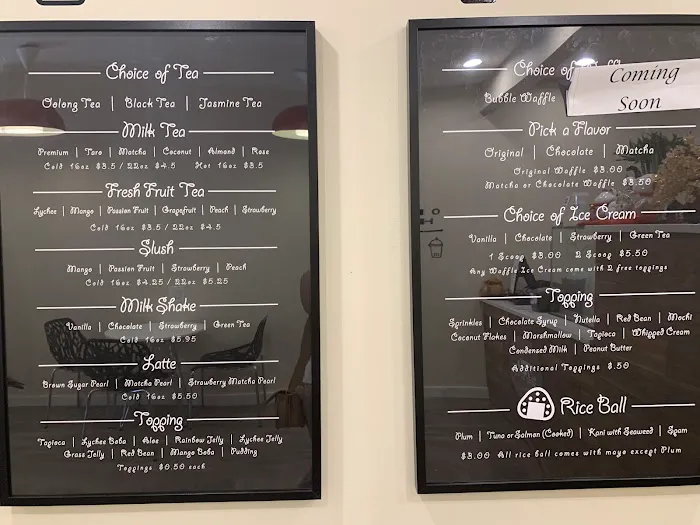 Choice of Tea
Oolong Tea | Black Tea | Jasmine Tea
Milk Tea
Premium | Taro | Matcha | Coconut | Almond | Rose
Cold 16oz $3.5 / 22oz $4.5 Hot 16oz $3.5
Fresh Fruit Tea
Lychee | Mango | Passion Fruit | Grapefruit | Peach | Strawberry
Cold 16oz $3.5 / 22oz $4.5
Slush
Mango | Passion Fruit | Strawberry | Peach
Cold 16oz $4.25 / 22oz $5.25
Milk Shake
Vanilla | Chocolate | Strawberry | Green Tea
Cold 16oz $5.95
Latte
Brown Sugar Pearl | Matcha Pearl | Strawberry Matcha Pearl
Cold 16oz $5.50
Topping
Tapioca | Lychee Boba | Aloe | Rainbow Jelly | Lychee Jelly
Grass Jelly | Red Bean | Mango Boba | Pudding
Toppings $0.50 each
Choice of
Bubble Waffle
Coming
Soon
Pick a Flavor
Original | Chocolate | Matcha
Original Waffle $3.00
Matcha or Chocolate Waffle $3.50
Choice of Ice Cream
Vanilla | Chocolate | Strawberry | Green Tea
1 Scoop $3.00 2 Scoop $5.50
Any Waffle Ice Cream come with 2 free toppings
Topping
Sprinkles | Chocolate Syrup | Nutella | Red Bean | Mochi
Coconut Flakes | Marshmallow | Tapioca | Whipped Cream
Condensed Milk | Peanut Butter
Additional Toppings $.50
Rice Ball
Plum | Tuna or Salmon (Cooked) | Kani with Seaweed | Spam
$3.00 All rice ball comes with mayo except Plum